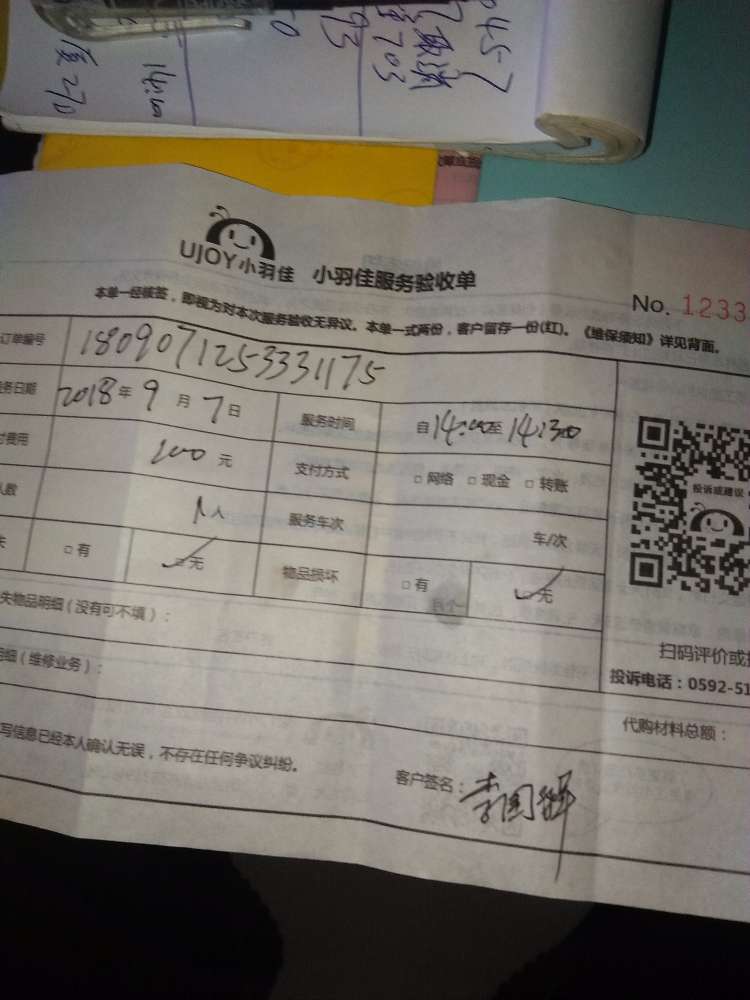 045-7
703
93
14:00
270
UJOY小羽佳 小羽佳服务验收单
No. 1233
本单一经核签,即视为对本次服务验收无异议。本单一式两份,客户留存一份(红)。《维保须知》详见背面。
订单编号 1809071253331175
务日期 2018年9月7日 服务时间 自14:00至14:30
付费用 200元 支付方式 □网络 □现金 □转账
人数 服务车次 车/次
失 □有 □无 物品损坏 □有 □无
投诉或建议
失物品明细(没有可不填):
明细(维修业务):
扫码评价或
投诉电话:0592-51
代购材料总额:
写信息已经本人确认无误,不存在任何争议纠纷。
客户签名:李国辉